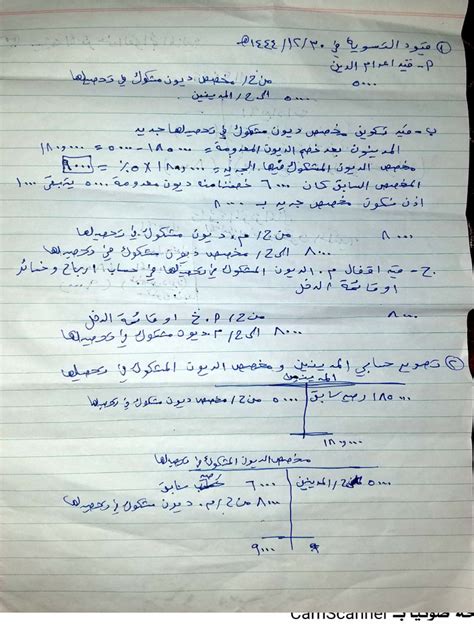 ① قيود التسوية في ١٤٤٤/١٢/٣٠هـ
P - قيد إعدام الدين
٥٠٠٠ من ح/ مخصص ديون مشكوك في تحصيلها
٥٠٠٠ الى ح/ المدينين
ب - قيد تكوين مخصص ديون مشكوك في تحصيلها جديد
المدينون بعد خصم الديون المعدومة = ١٨٥٠٠٠ - ٥٠٠٠ = ١٨٠٠٠٠
مخصص الديون المشكوك فيها الجديد = ١٨٠٠٠٠ × ٥٪ = ٩٠٠٠
المخصص السابق كان ٦٠٠٠ خصمنا منه ديون معدومة ٥٠٠٠ يتبقى ١٠٠٠
اذن نكون مخصص جديد بـ ٨٠٠٠
٨٠٠٠ من ح/ م. ديون مشكوك في تحصيلها
٨٠٠٠ الى ح/ مخصص ديون مشكوك في تحصيلها
ج - قيد اقفال م. الديون المشكوك في تحصيلها في حساب ارباح وخسائر
او قائمة الدخل
٨٠٠٠ من ح/ أ. خ او قائمة الدخل
٨٠٠٠ الى ح/ م. ديون مشكوك في تحصيلها
② تصوير حسابي المدينين ومخصص الديون المشكوك في تحصيلها
المدينين
١٨٥٠٠٠ رصيد سابق ٥٠٠٠ من ح/ مخصص ديون مشكوك في تحصيلها
١٨٠٠٠٠
مخصص الديون المشكوك في تحصيلها
٥٠٠٠ ح/ المدينين ٦٠٠٠ سابق
٨٠٠٠ من ح/ م. ديون مشكوك في تحصيلها
٩٠٠٠
ضوئيا بـ CamScanner